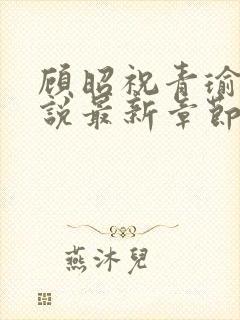 顾昭祝青瑜
說最新章節
燕沐兒